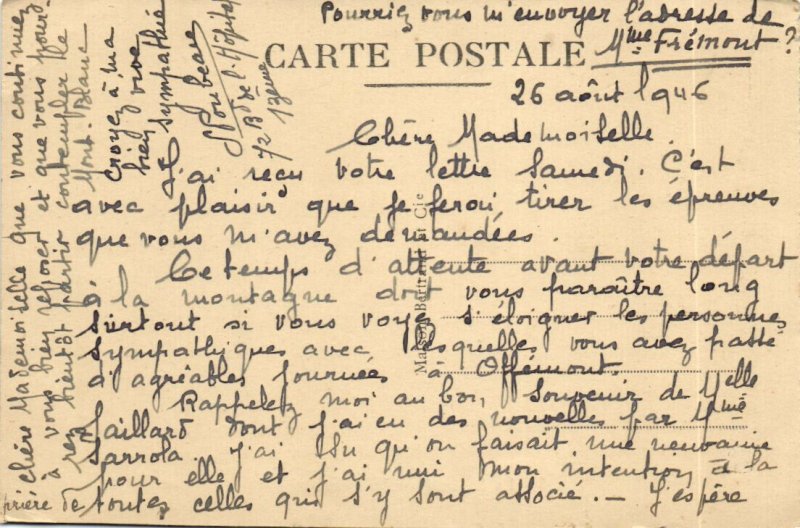 Pourriez vous m'envoyer l'adresse de
Mme Frémont ?
CARTE POSTALE
26 août 1946
Chère Mademoiselle
J'ai reçu votre lettre Samedi. C'est
avec plaisir que je ferai tirer les épreuves
que vous m'avez demandées.
Ce temps d'attente avant votre départ
à la montagne doit vous paraître long
surtout si vous voyez s'éloigner les personnes
sympathiques avec lesquelles vous avez passé
d'agréables journées à Offémont.
Rappelez moi au bon souvenir de Melle
Gaillard dont j'ai eu des nouvelles par Mme
Sarrola. J'ai su qu'on faisait une neuvaine
pour elle et j'ai uni mon intention à la
prière de toutes celles qui s'y sont associé. - J'espère
chère Mademoiselle que vous continuez
à vous bien reposer et que vous pour
rez bientôt partir contempler le
Mont-Blanc
Croyez à ma
bien vive
sympathie
72 Bd de l'Hôpital
13ème